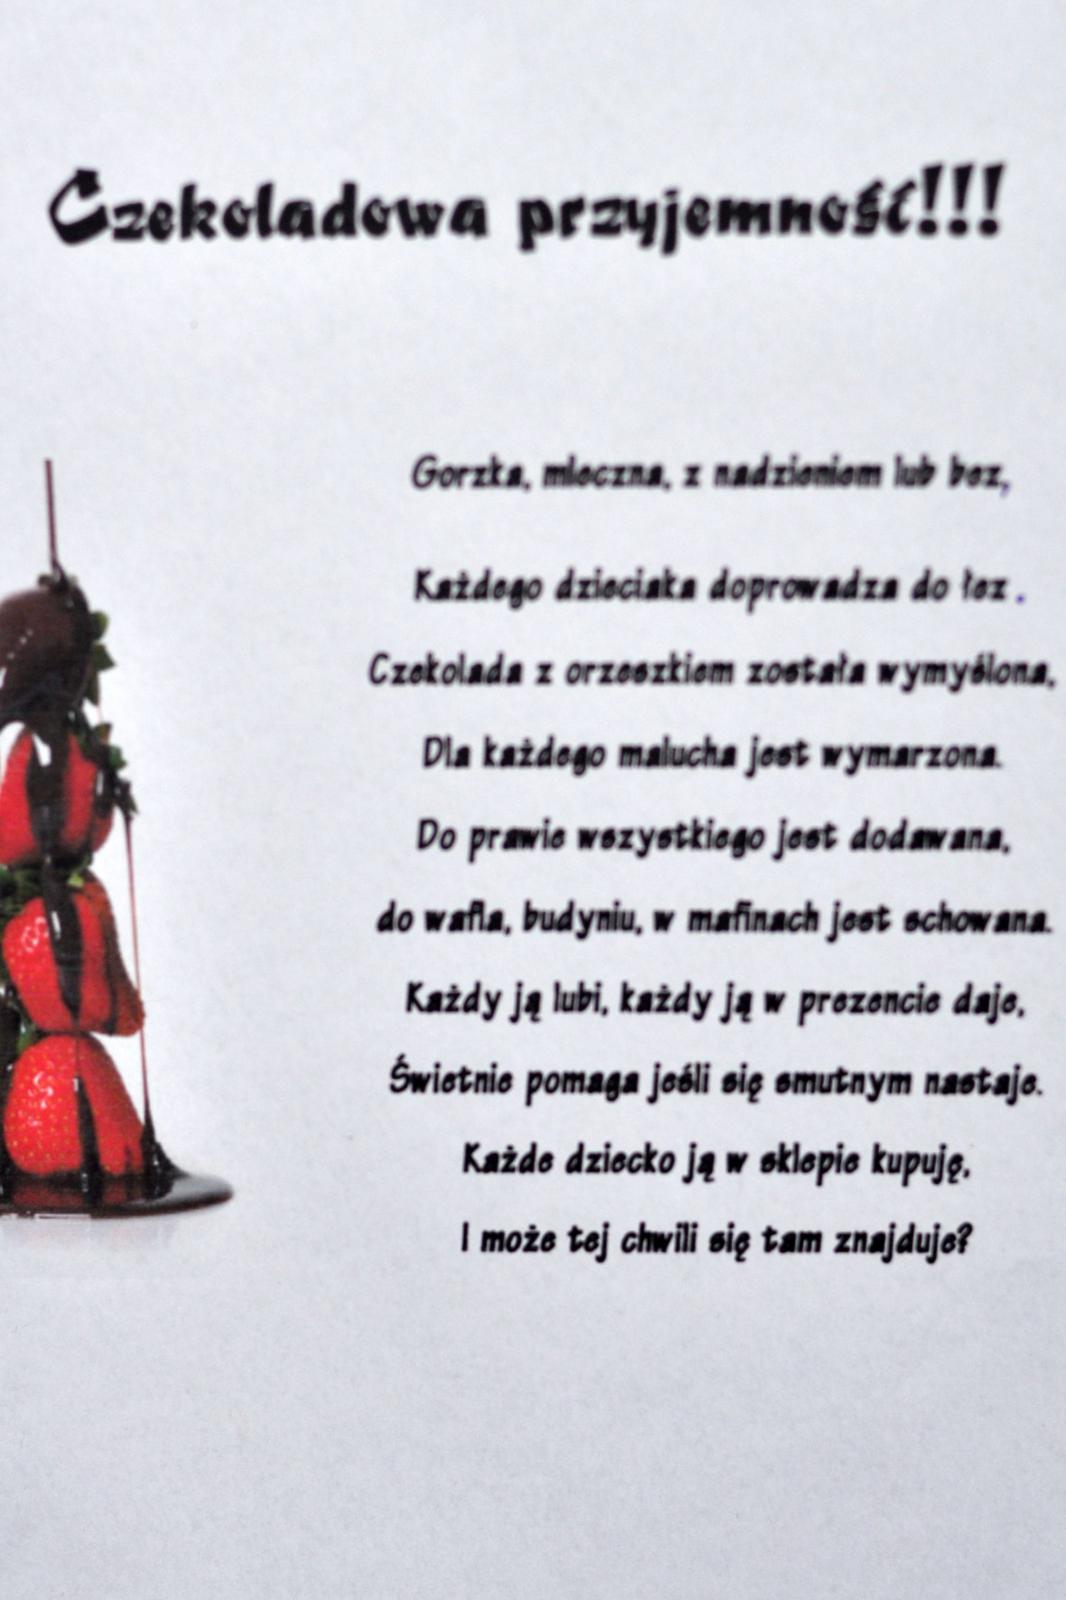 Czekoladowa przyjemność!!!
Gorzka, mleczna, z nadzieniem lub bez,
Każdego dzieciaka doprowadza do łez .
Czekolada z orzeszkiem została wymyślona,
Dla każdego malucha jest wymarzona.
Do prawie wszystkiego jest dodawana,
do wafla, budyniu, w mafinach jest schowana.
Każdy ją lubi, każdy ją w prezencie daje,
Świetnie pomaga jeśli się smutnym nastaje.
Każde dziecko ją w sklepie kupuję,
I może tej chwili się tam znajduje?